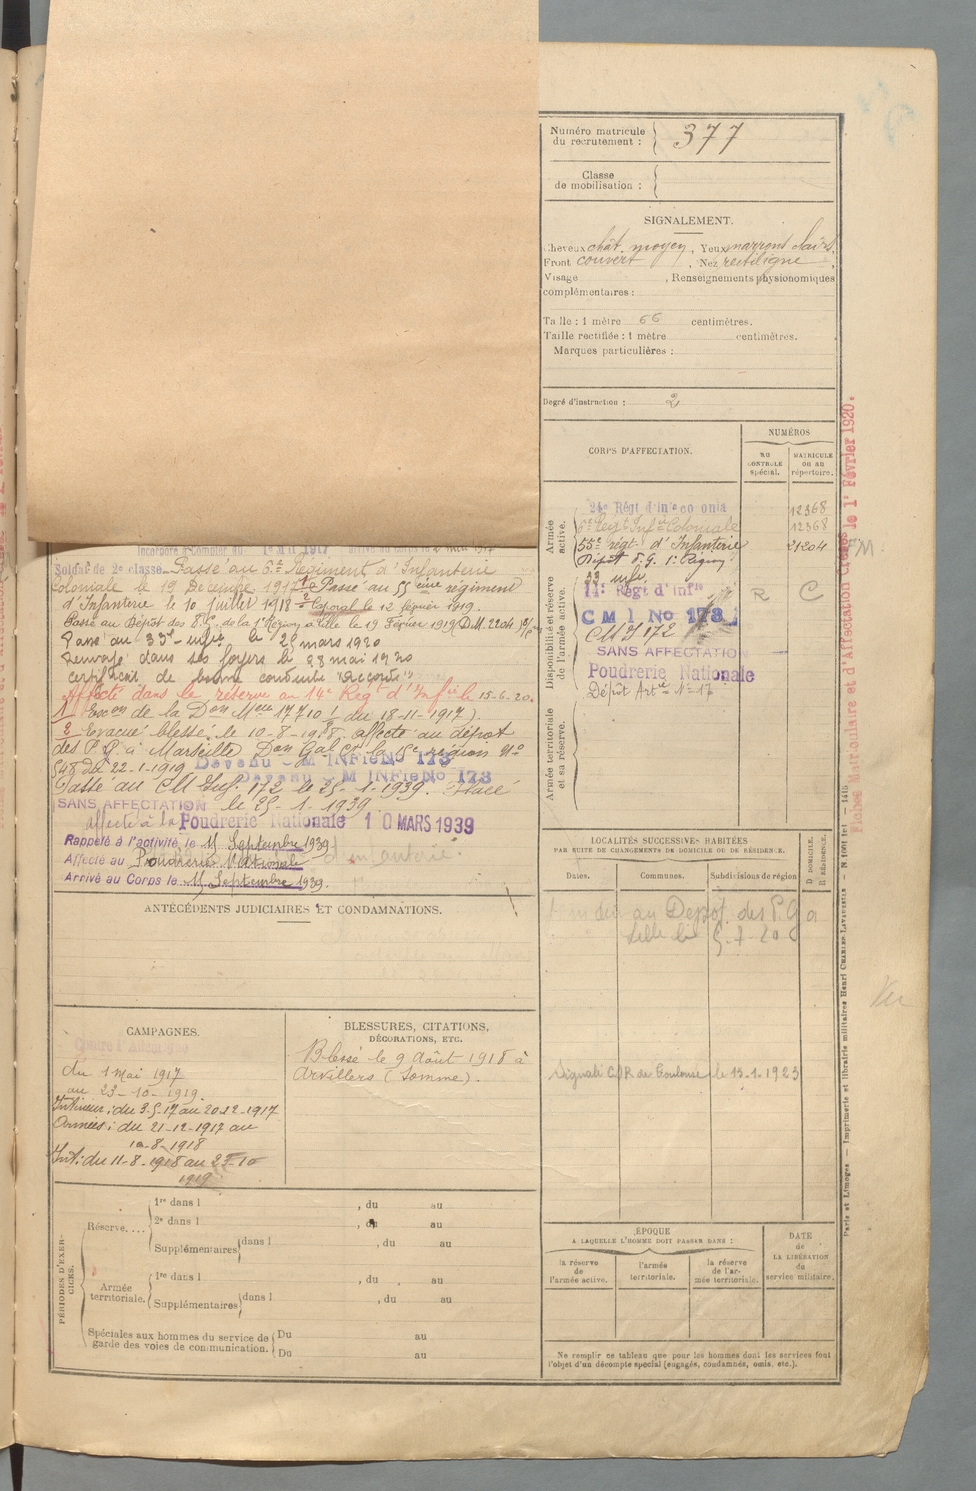 Numéro matricule
du recrutement : 377
Classe
de mobilisation :
SIGNALEMENT.
Cheveux chât. moyen, Yeux marrons clairs,
Front couvert, Nez rectiligne,
Visage , Renseignements physionomiques
complémentaires :
Taille : 1 mètre 66 centimètres.
Taille rectifiée : 1 mètre centimètres.
Marques particulières :
Degré d'instruction : 2
CORPS D'AFFECTATION.
NUMÉROS
AU CONTROLE spécial.
MATRICULE ou au répertoire.
Armée active.
24e Régt d'Infie coloniale 12368
6e Régt Infie Coloniale 12368
55e régt d'Infanterie 21204
Dépôt P.G. 1e Région
Disponibilité et réserve de l'armée active.
33 Infie
14e Régt d'Infie R C
CMI No 173
CMI 172
SANS AFFECTATION
Poudrerie Nationale
Dépôt Artie No 17
Armée territoriale et sa réserve.
Incorporé à compter du 1er Mai 1917 arrivé au corps le 2 mai 1917
Soldat de 2e classe. Passé au 6e Régiment d'Infanterie
Coloniale le 19 Décembre 1917 1 Passé au 55ème régiment
d'Infanterie le 10 juillet 1918 2 Caporal le 12 février 1919.
Passé au Dépôt des P.G. de la 1e Région à Lille le 19 Février 1919 (D.M. 2204
Passé au 33e infie le 29 mars 1920
Renvoyé dans ses foyers le 28 mai 1920
certificat de bonne conduite "Accordé"
Affecté dans la réserve au 14e Régt d'Infie le 15-6-20.
1 Exon de la Don Mlle 17710 du 18-11-1917).
2 Evacué blessé le 10-8-1918 affecté au dépôt
des P.G. à Marseille Don Gal Ct la 15e région No
548 du 22-1-1919 Devenu - M INFie No 173
Devenu - M INFie No 173
Passé au CM Inf. 172 le 25-1-1939. Placé
SANS AFFECTATION le 25-1-1939
affecté à la Poudrerie Nationale 10 MARS 1939
Rappelé à l'activité le 11 Septembre 1939.
Affecté au Poudrerie Nationale
Arrivé au Corps le 11 Septembre 1939.
ANTÉCÉDENTS JUDICIAIRES ET CONDAMNATIONS.
LOCALITÉS SUCCESSIVES HABITÉES
PAR SUITE DE CHANGEMENTS DE DOMICILE OU DE RÉSIDENCE.
Dates. Communes. Subdivisions de région
D DOMICILE. R RÉSIDENCE.
au Dépôt des P.G a
Lille le 5-7-20
Signalé C.R de Toulouse le 15-1-1923
CAMPAGNES.
Contre l'Allemagne
du 1 Mai 1917
au 23-10-1919.
Intérieur : du 3.5.17 au 20.12-1917
Armées : du 21-12-1917 au
10-8-1918
Int : du 11-8-1918 au 23-10
1919
BLESSURES, CITATIONS,
DÉCORATIONS, ETC.
Blessé le 9 Août 1918 à
Arvillers (Somme).
PÉRIODES D'EXERCICES.
Réserve....
1re dans l , du au
2e dans l , du au
Supplémentaires dans l , du au
Armée territoriale.
1re dans l , du . au
Supplémentaires dans l , du au
Spéciales aux hommes du service de
garde des voies de communication.
Du au
Du au
ÉPOQUE
A LAQUELLE L'HOMME DOIT PASSER DANS :
la réserve de l'armée active.
l'armée territoriale.
la réserve de l'armée territoriale.
DATE de LA LIBÉRATION du service militaire.
Ne remplir ce tableau que pour les hommes dont les services font
l'objet d'un décompte spécial (engagés, condamnés, omis, etc.).
Fiches Matriculaire et d'Affectation Créées le 1r Février 1920.
Paris et Limoges. — Imprimerie et librairie militaires Henri CHARLES-LAVAUZELLE
Vu